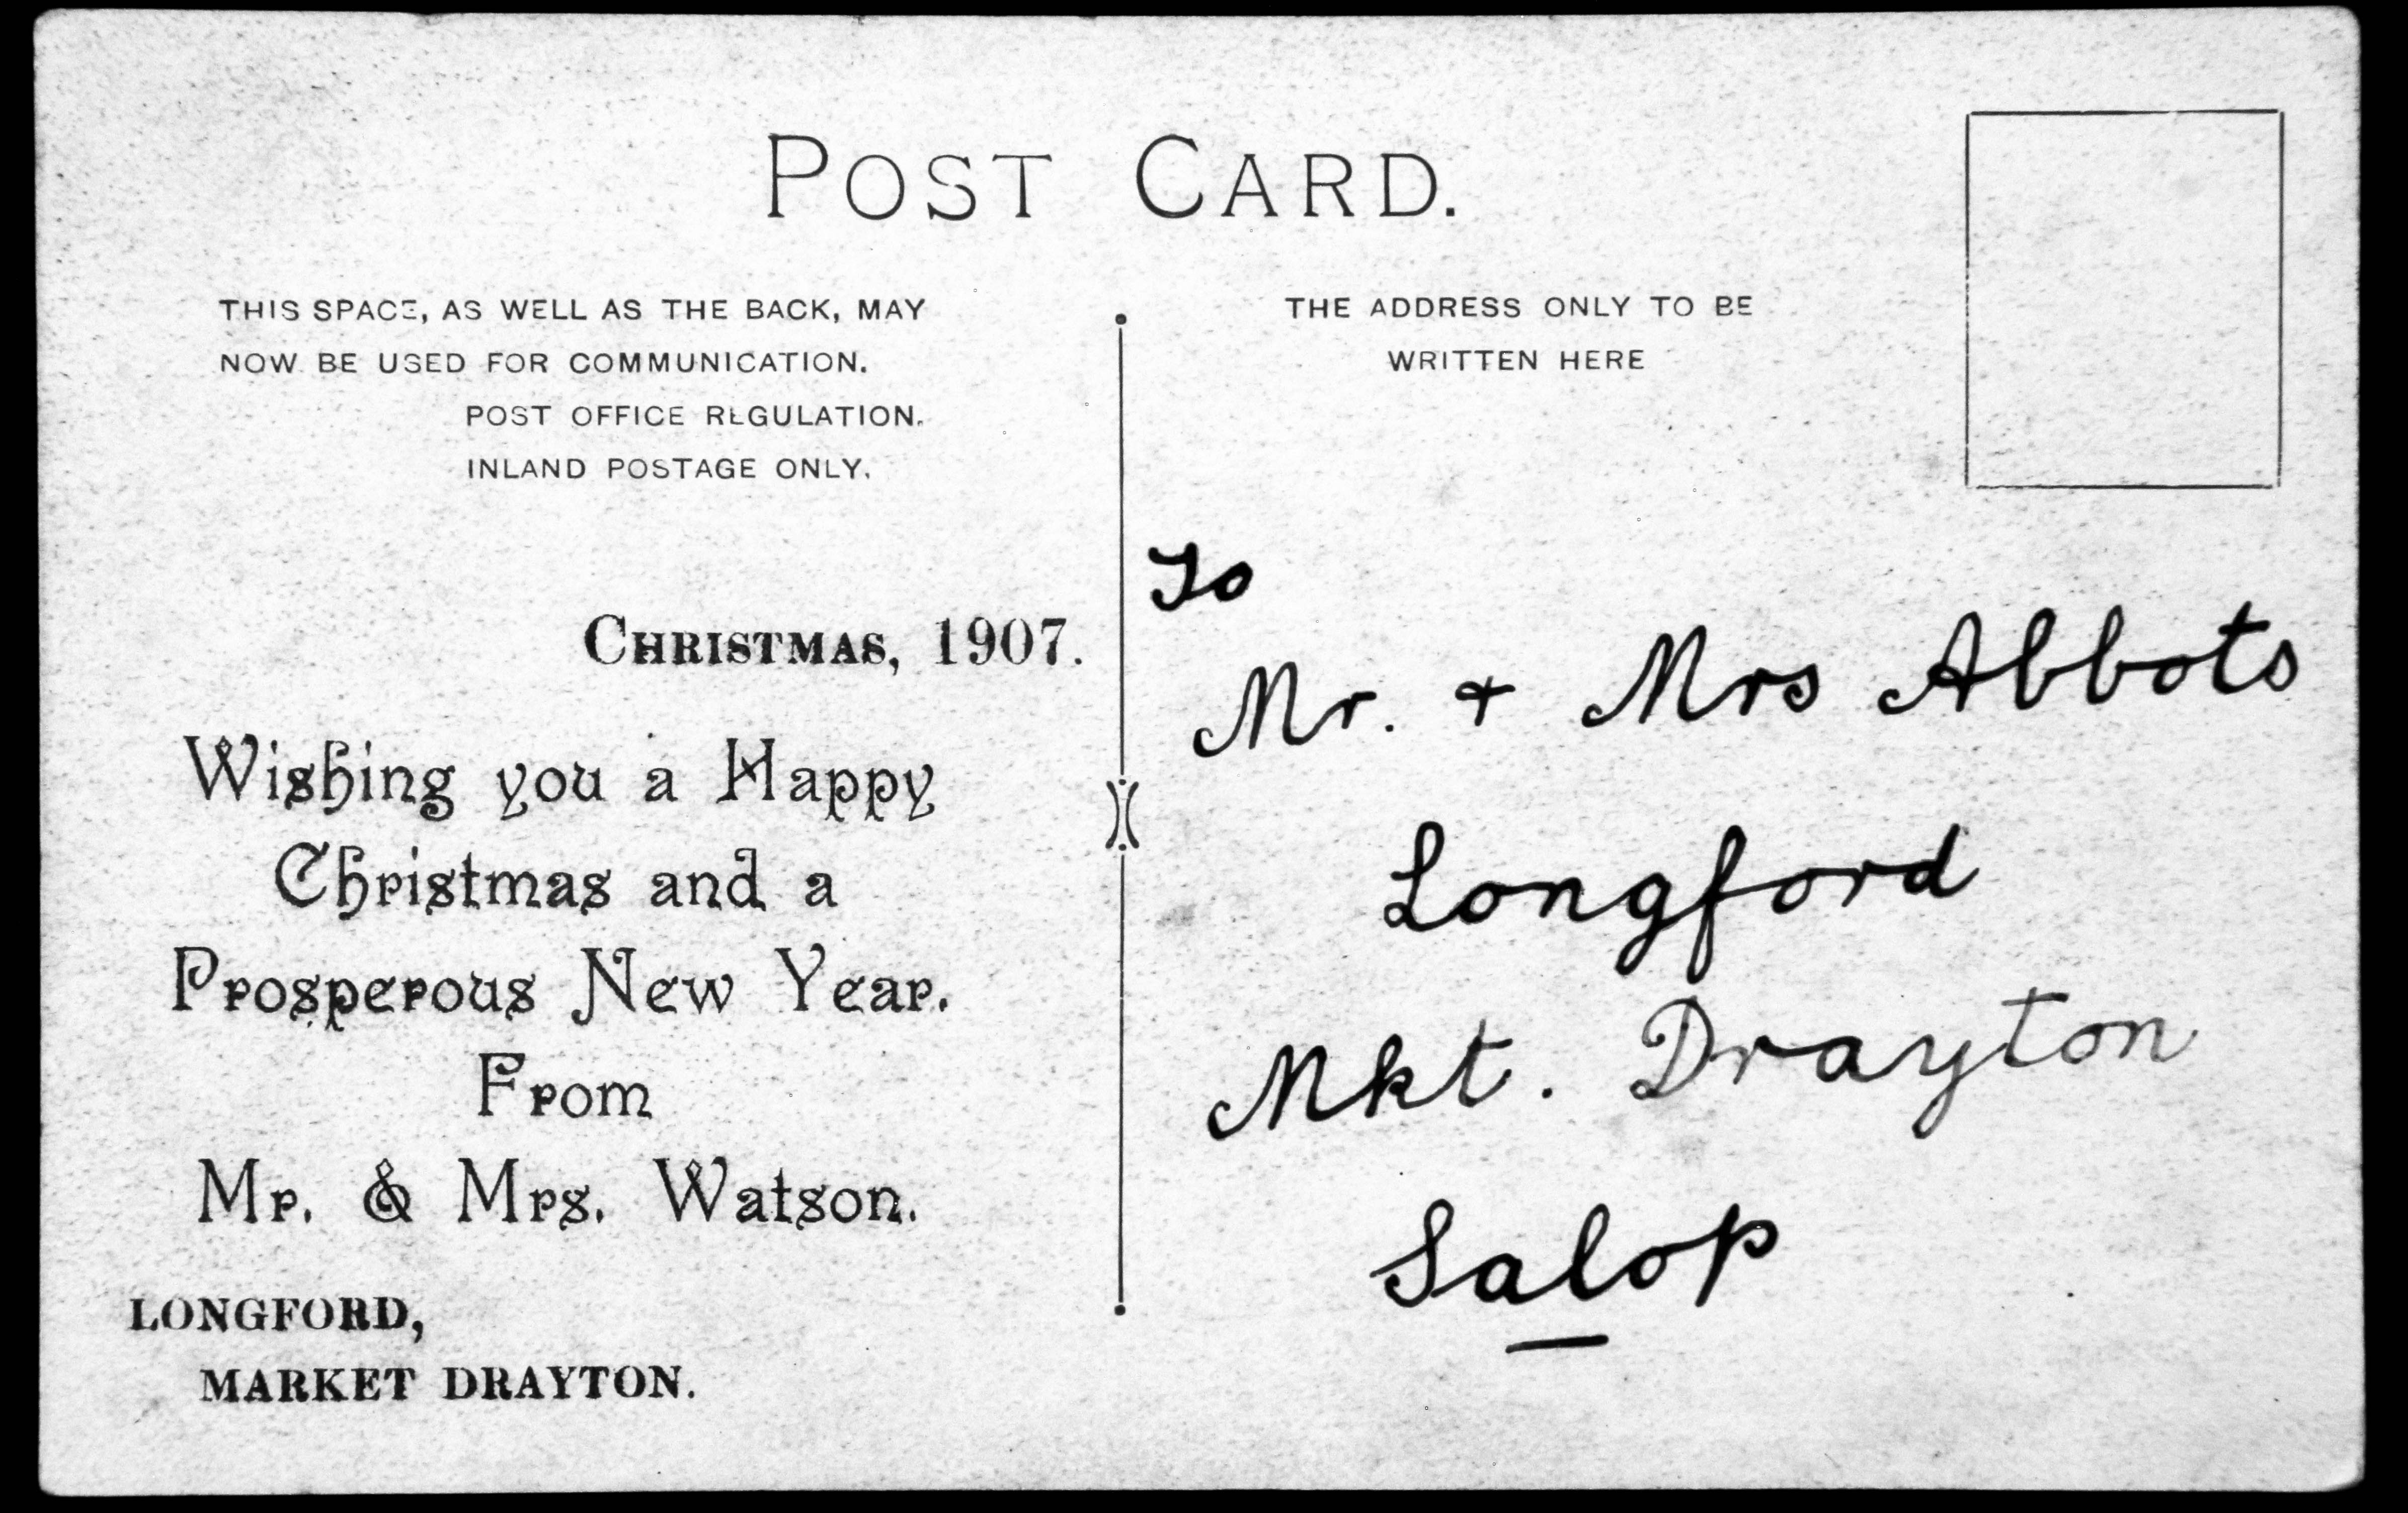 POST CARD.
THIS SPACE, AS WELL AS THE BACK, MAY
NOW BE USED FOR COMMUNICATION.
POST OFFICE REGULATION.
INLAND POSTAGE ONLY.
CHRISTMAS, 1907.
Wishing you a Happy
Christmas and a
Prosperous New Year.
From
Mr. & Mrs. Watson.
LONGFORD,
MARKET DRAYTON.
THE ADDRESS ONLY TO BE
WRITTEN HERE
To
Mr. + Mrs Abbots
Longford
Mkt. Drayton
Salop